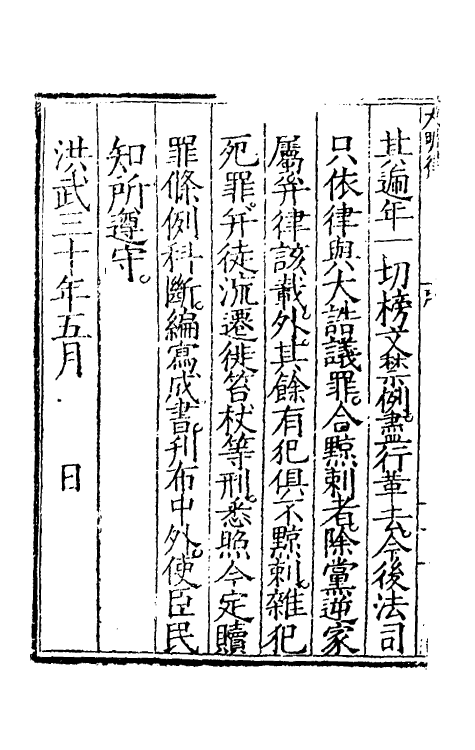 大明律
其遞年一切榜文禁例。盡行革去。今後法司
只依律與大誥議罪。合黥刺者。除黨逆家
屬并律該載外。其餘有犯俱不黥刺。雜犯
死罪。并徒流遷徙笞杖等刑。悉照今定贖
罪條例科斷。編寫成書。刋布中外。使臣民
知所遵守。
洪武三十年五月 日